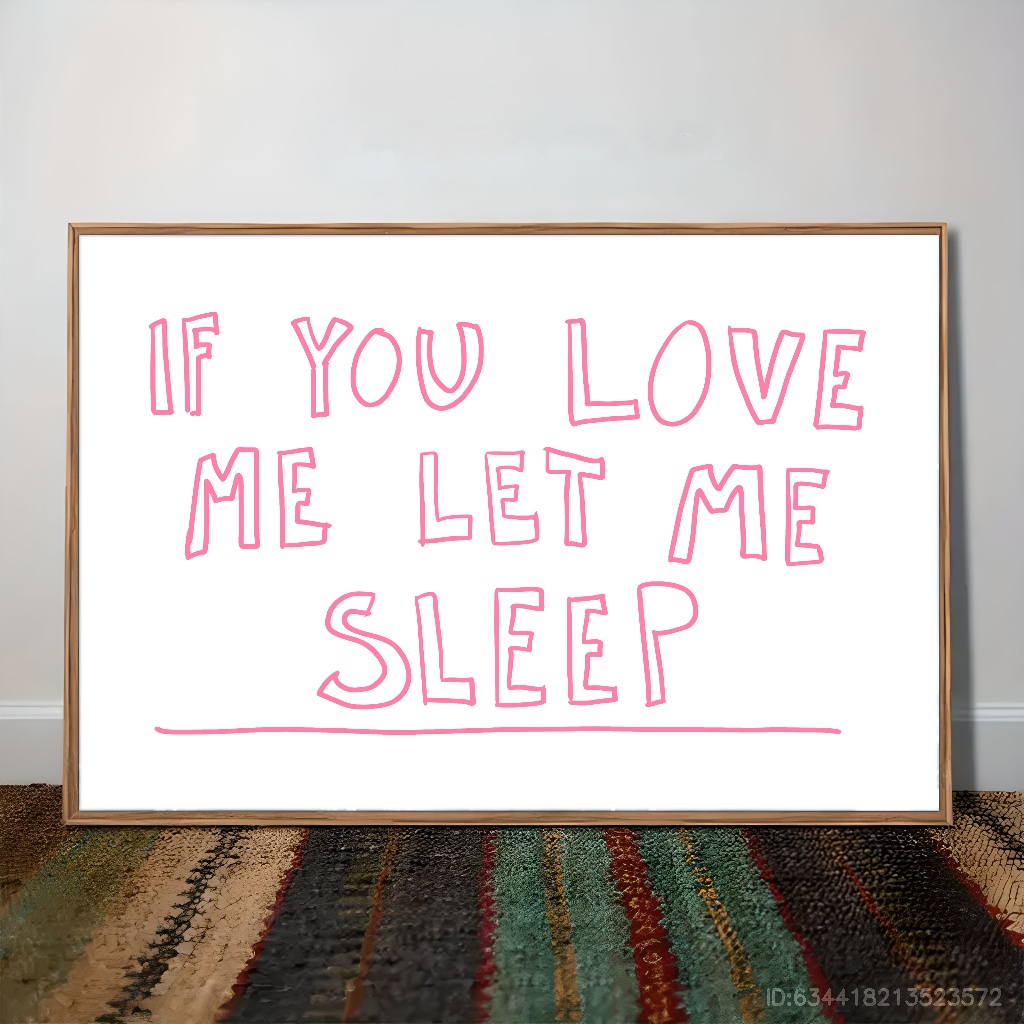 IF YOU LOVE
ME LET ME
SLEEP
ID:634418213523572